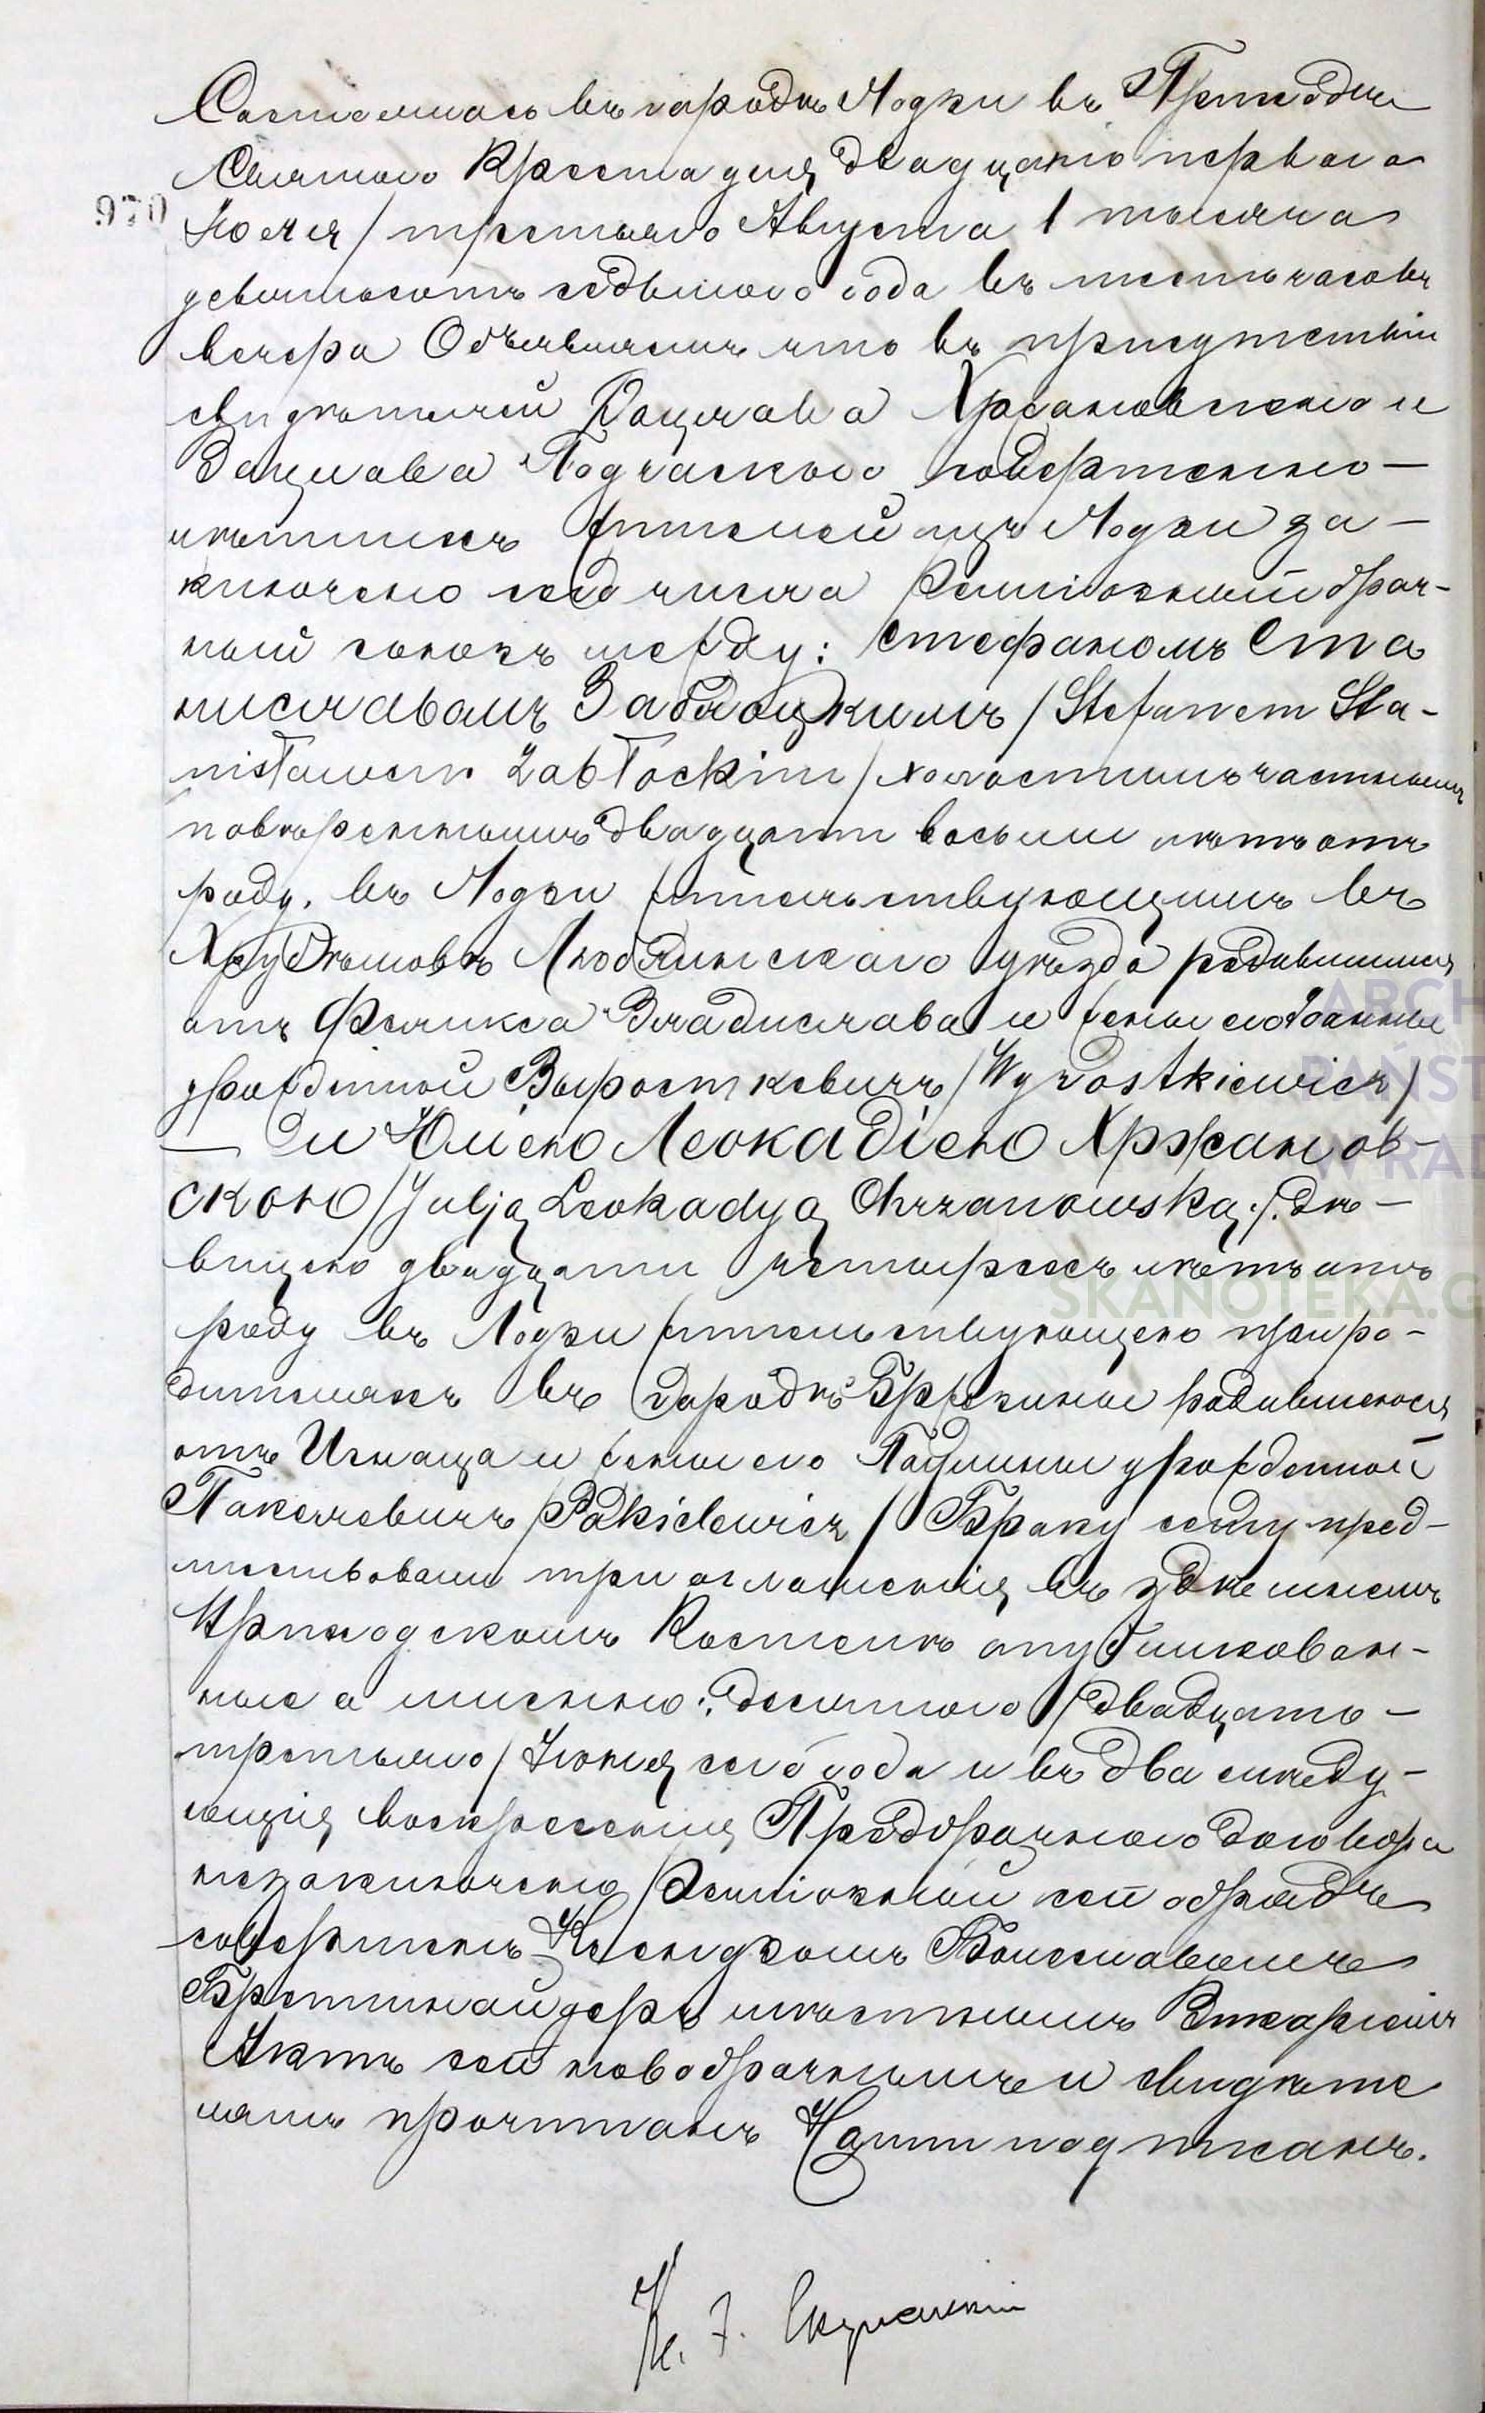 Состоялось въ городѣ Лодзи въ Приходѣ
Святаго Креста дня двадцать перваго
970 Іюля / третьяго Августа / тысяча
девятьсотъ седьмого года въ шесть часовъ
вечера Объявляемъ что въ присутствіи
свидѣтелей Вацлава Хржановскаго и
Вацлава Подчаскаго совершенно-
лѣтнихъ жителей изъ Лодзи за-
ключено сего числа Религіозный брач-
ный союзъ между: Стефаномъ Ста
ниславомъ Заблоцкимъ / Stefanem Sta-
nisławem Zabłockim / холостымъ частнымъ
повѣреннымъ двадцати восьми лѣтъ отъ
роду, въ Лодзи жительствующимъ въ
Любля́нскаго уѣзда родившимся
отъ Феликса Владислава и жены его Іоанны
урожденной Выросткевичъ / Wyrostkiewicz /
— и Юліею Леокадіею Хржанов-
скою / Julją Leokadyą Chrzanowską /. дѣ-
вицею двадцати четырехъ лѣтъ отъ
роду въ Лодзи жительствующею при ро-
дителяхъ въ Городѣ Брезины родившеюся
отъ Игнаца и жены его Паулины урожденной
Пакелевичъ / Pakielewicz / Браку сему пред-
шествовали три оглашенія въ здѣшнемъ
Приходскомъ Костелѣ опубликован-
ные а именно: десятого / двадцать-
третьяго / Іюня сего года и въ два слѣду-
ющія воскресенія Предбрачнаго договора
незаключено Религіозный сей обрядъ
совершенъ Ксендзомъ Болеславомъ
мѣстнымъ Викаріемъ
Актъ сей новобрачнымъ и свидѣте
лямъ прочитанъ Нами подписанъ.
К. З.
ARCH
PAŃST
W RAD
SKANOTEKA.G